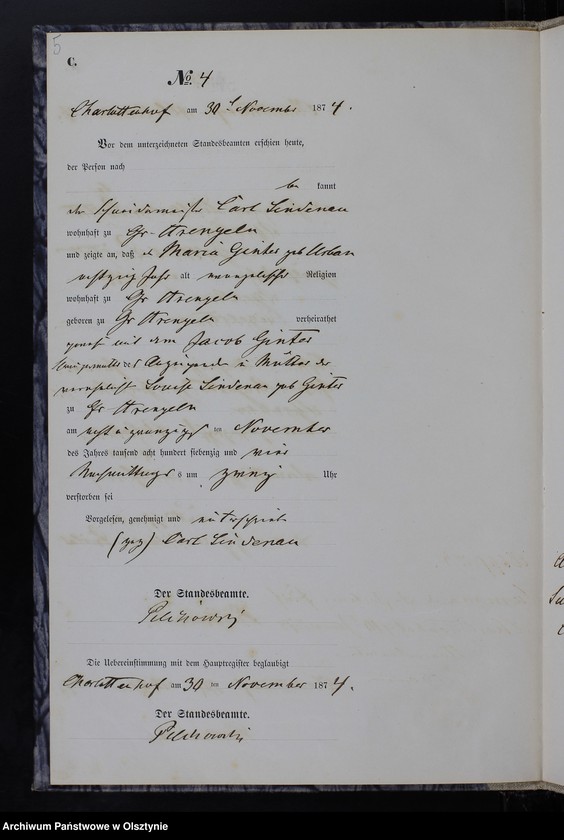 5
C.
No. 4
Charlottenhof am 30 t November 1874.
Vor dem unterzeichneten Standesbeamten erschien heute,
der Person nach
be kannt
der Schneidermeister Carl Lindenau
wohnhaft zu Gr Arengeln
und zeigte an, daß Maria Ginter geb Urban
achtzig Jahr alt evangelischer Religion
wohnhaft zu Gr Arengeln
geboren zu Gr Arengeln verheirathet
gewesen mit dem Jacob Ginter
Schwiegermutter des Anzeigenden u Mutter der
verehelicht Louise Lindenau geb Ginter
zu Gr Arengeln
am acht u zwanzigst ten November
des Jahres tausend acht hundert siebenzig und vier
Nachmittags um zwei Uhr
verstorben sei
Vorgelesen, genehmigt und unterschrieben
(gez) Carl Lindenau
Der Standesbeamte.
Pelchowski
Die Uebereinstimmung mit dem Hauptregister beglaubigt
Charlottenhof am 30 ten November 1874.
Der Standesbeamte.
Pelchowski
Archiwum Państwowe w Olsztynie